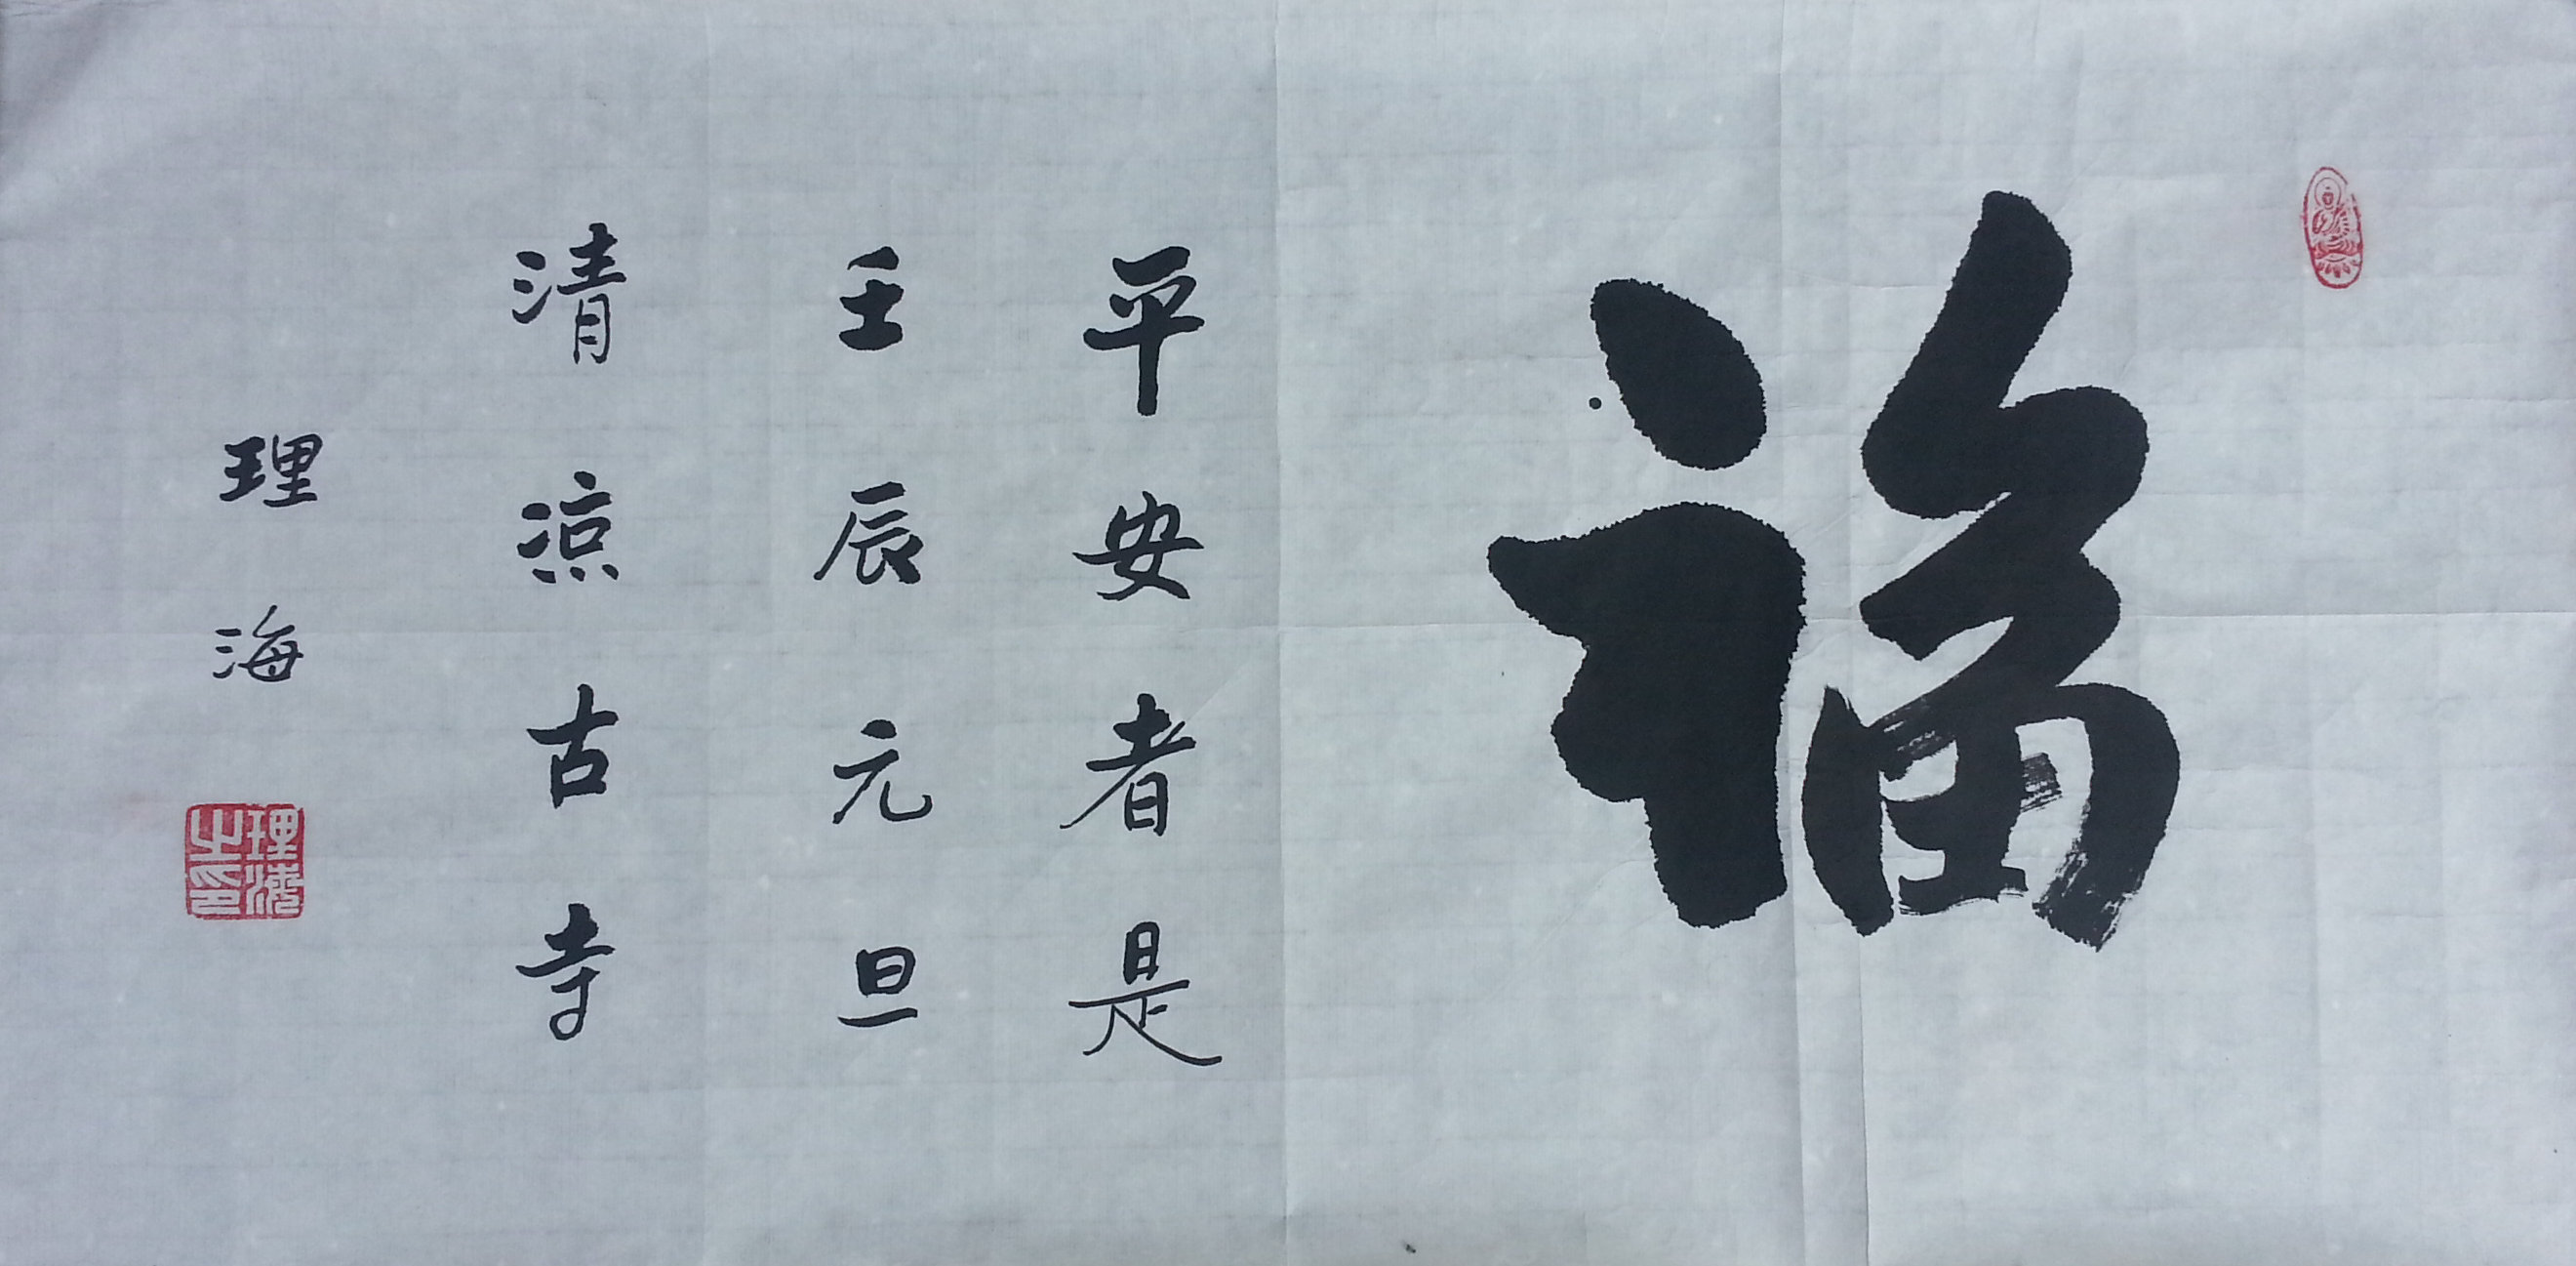 福
平安者是
壬辰元旦
清凉古寺
理海
理海之印